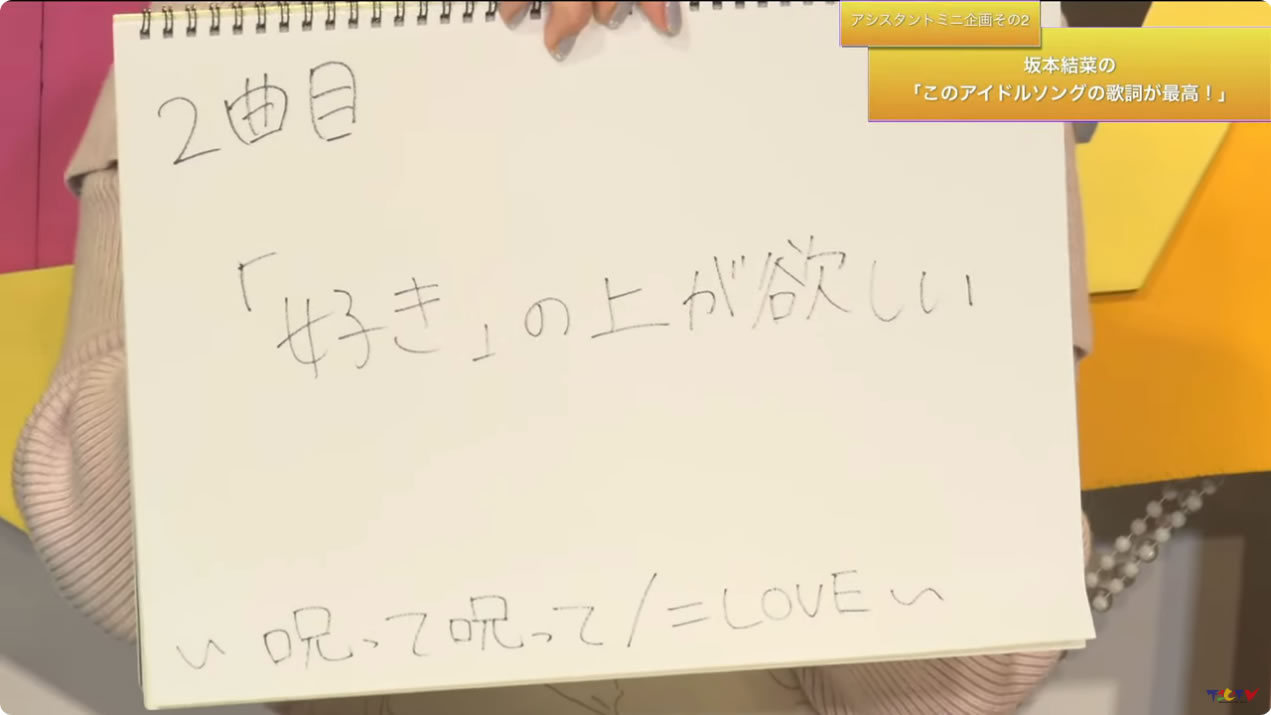 アシスタントミニ企画その2
坂本結菜の
「このアイドルソングの歌詞が最高！」
2曲目
「好き」の上が欲しい
〜 呪って呪って / =LOVE 〜